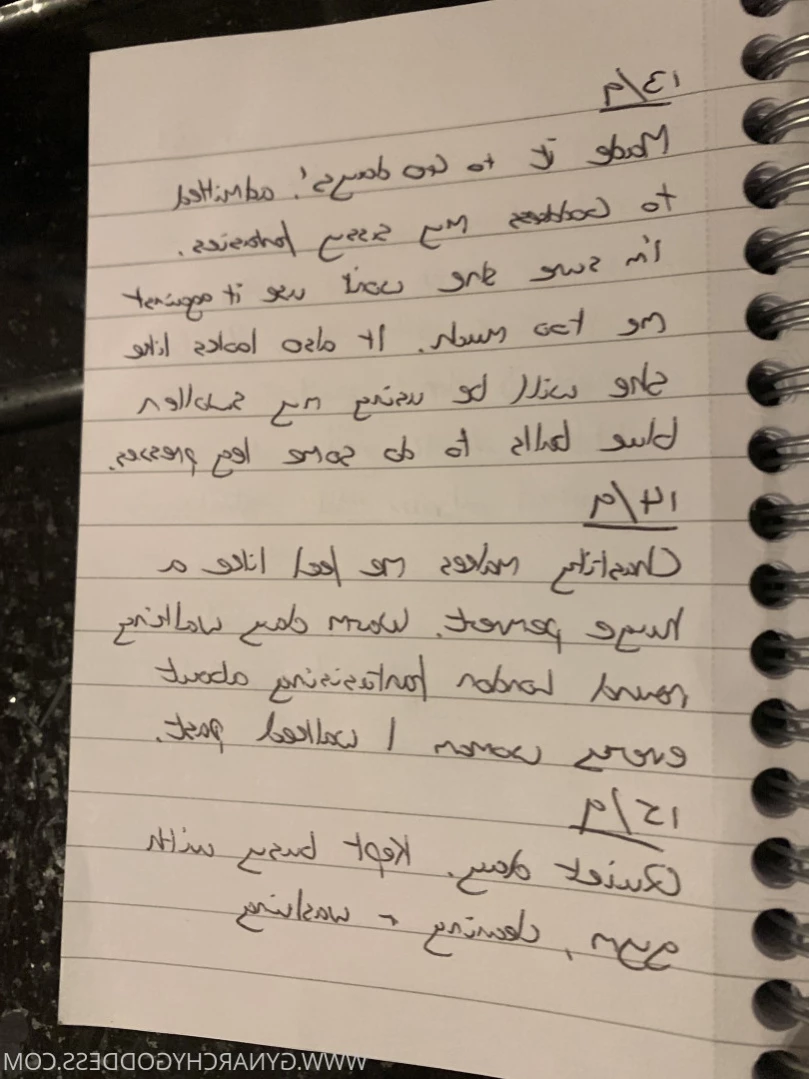 13/9
Made it to 60 days! admitted
to Goddess my sissy fantasies.
I'm sure she won't use it against
me too much. It also looks like
she will be using my swollen
blue balls to do some leg presses.
14/9
Chastity makes me feel like a
huge pervert. Warm day walking
round London fantasising about
every women I walked past.
15/9
Quiet day. Kept busy with
gym, cleaning + washing
WWW.GYNARCHYGODDESS.COM